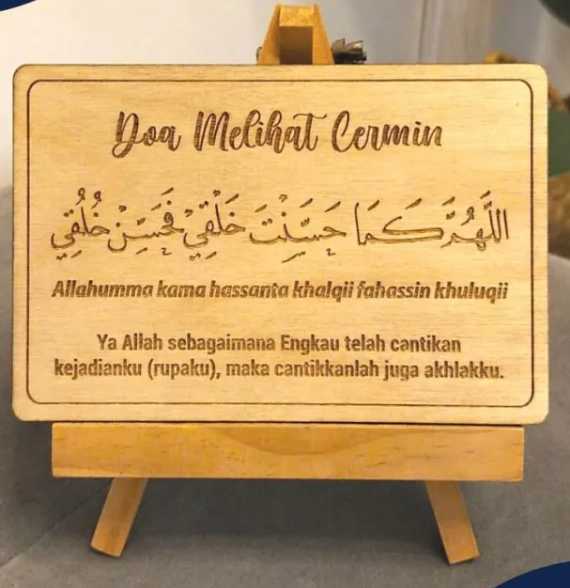 Doa Melihat Cermin
اللَّهُمَّ كَمَا حَسَّنْتَ خَلْقِيْ فَحَسِّنْ خُلُقِي
Allahumma kama hassanta khalqii fahassin khuluqii
Ya Allah sebagaimana Engkau telah cantikan
kejadianku (rupaku), maka cantikkanlah juga akhlakku.